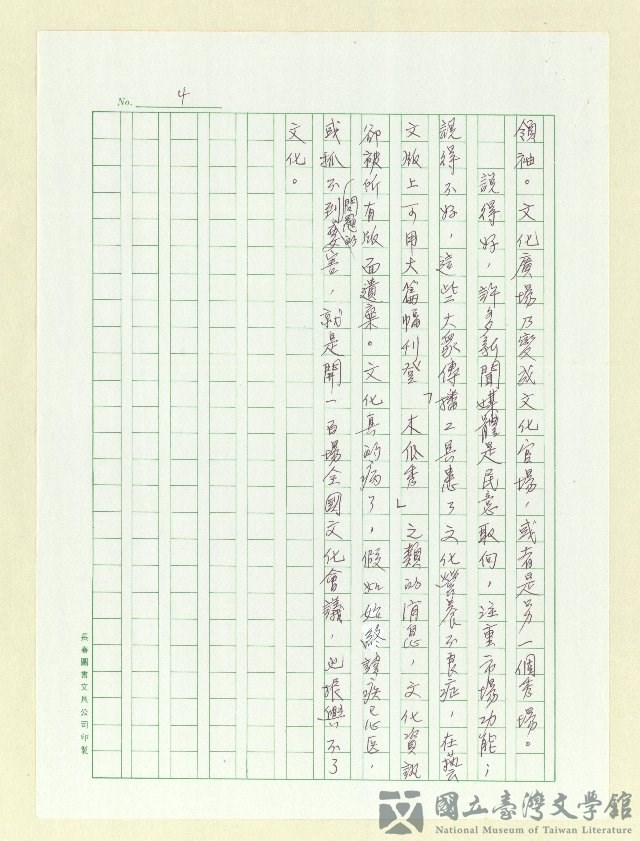 No. 4
領袖。文化廣場乃變成文化官場，或者是另一個秀場。
說得好，許多新聞媒體是民意取向，注重市場功能；
說得不好，這些大眾傳播工具患了文化營養不良症，在藝
文版上可用大篇幅刊登「木瓜秀」之類的消息，文化資訊
卻被所有版面遺棄。文化真的病了，假如始終諱疾忌医，
或抓不到問題的要害，就是開一百場全國文化會議，也振興不了
文化。
長春圖書文具公司印製
國立臺灣文學館
National Museum of Taiwan Literature